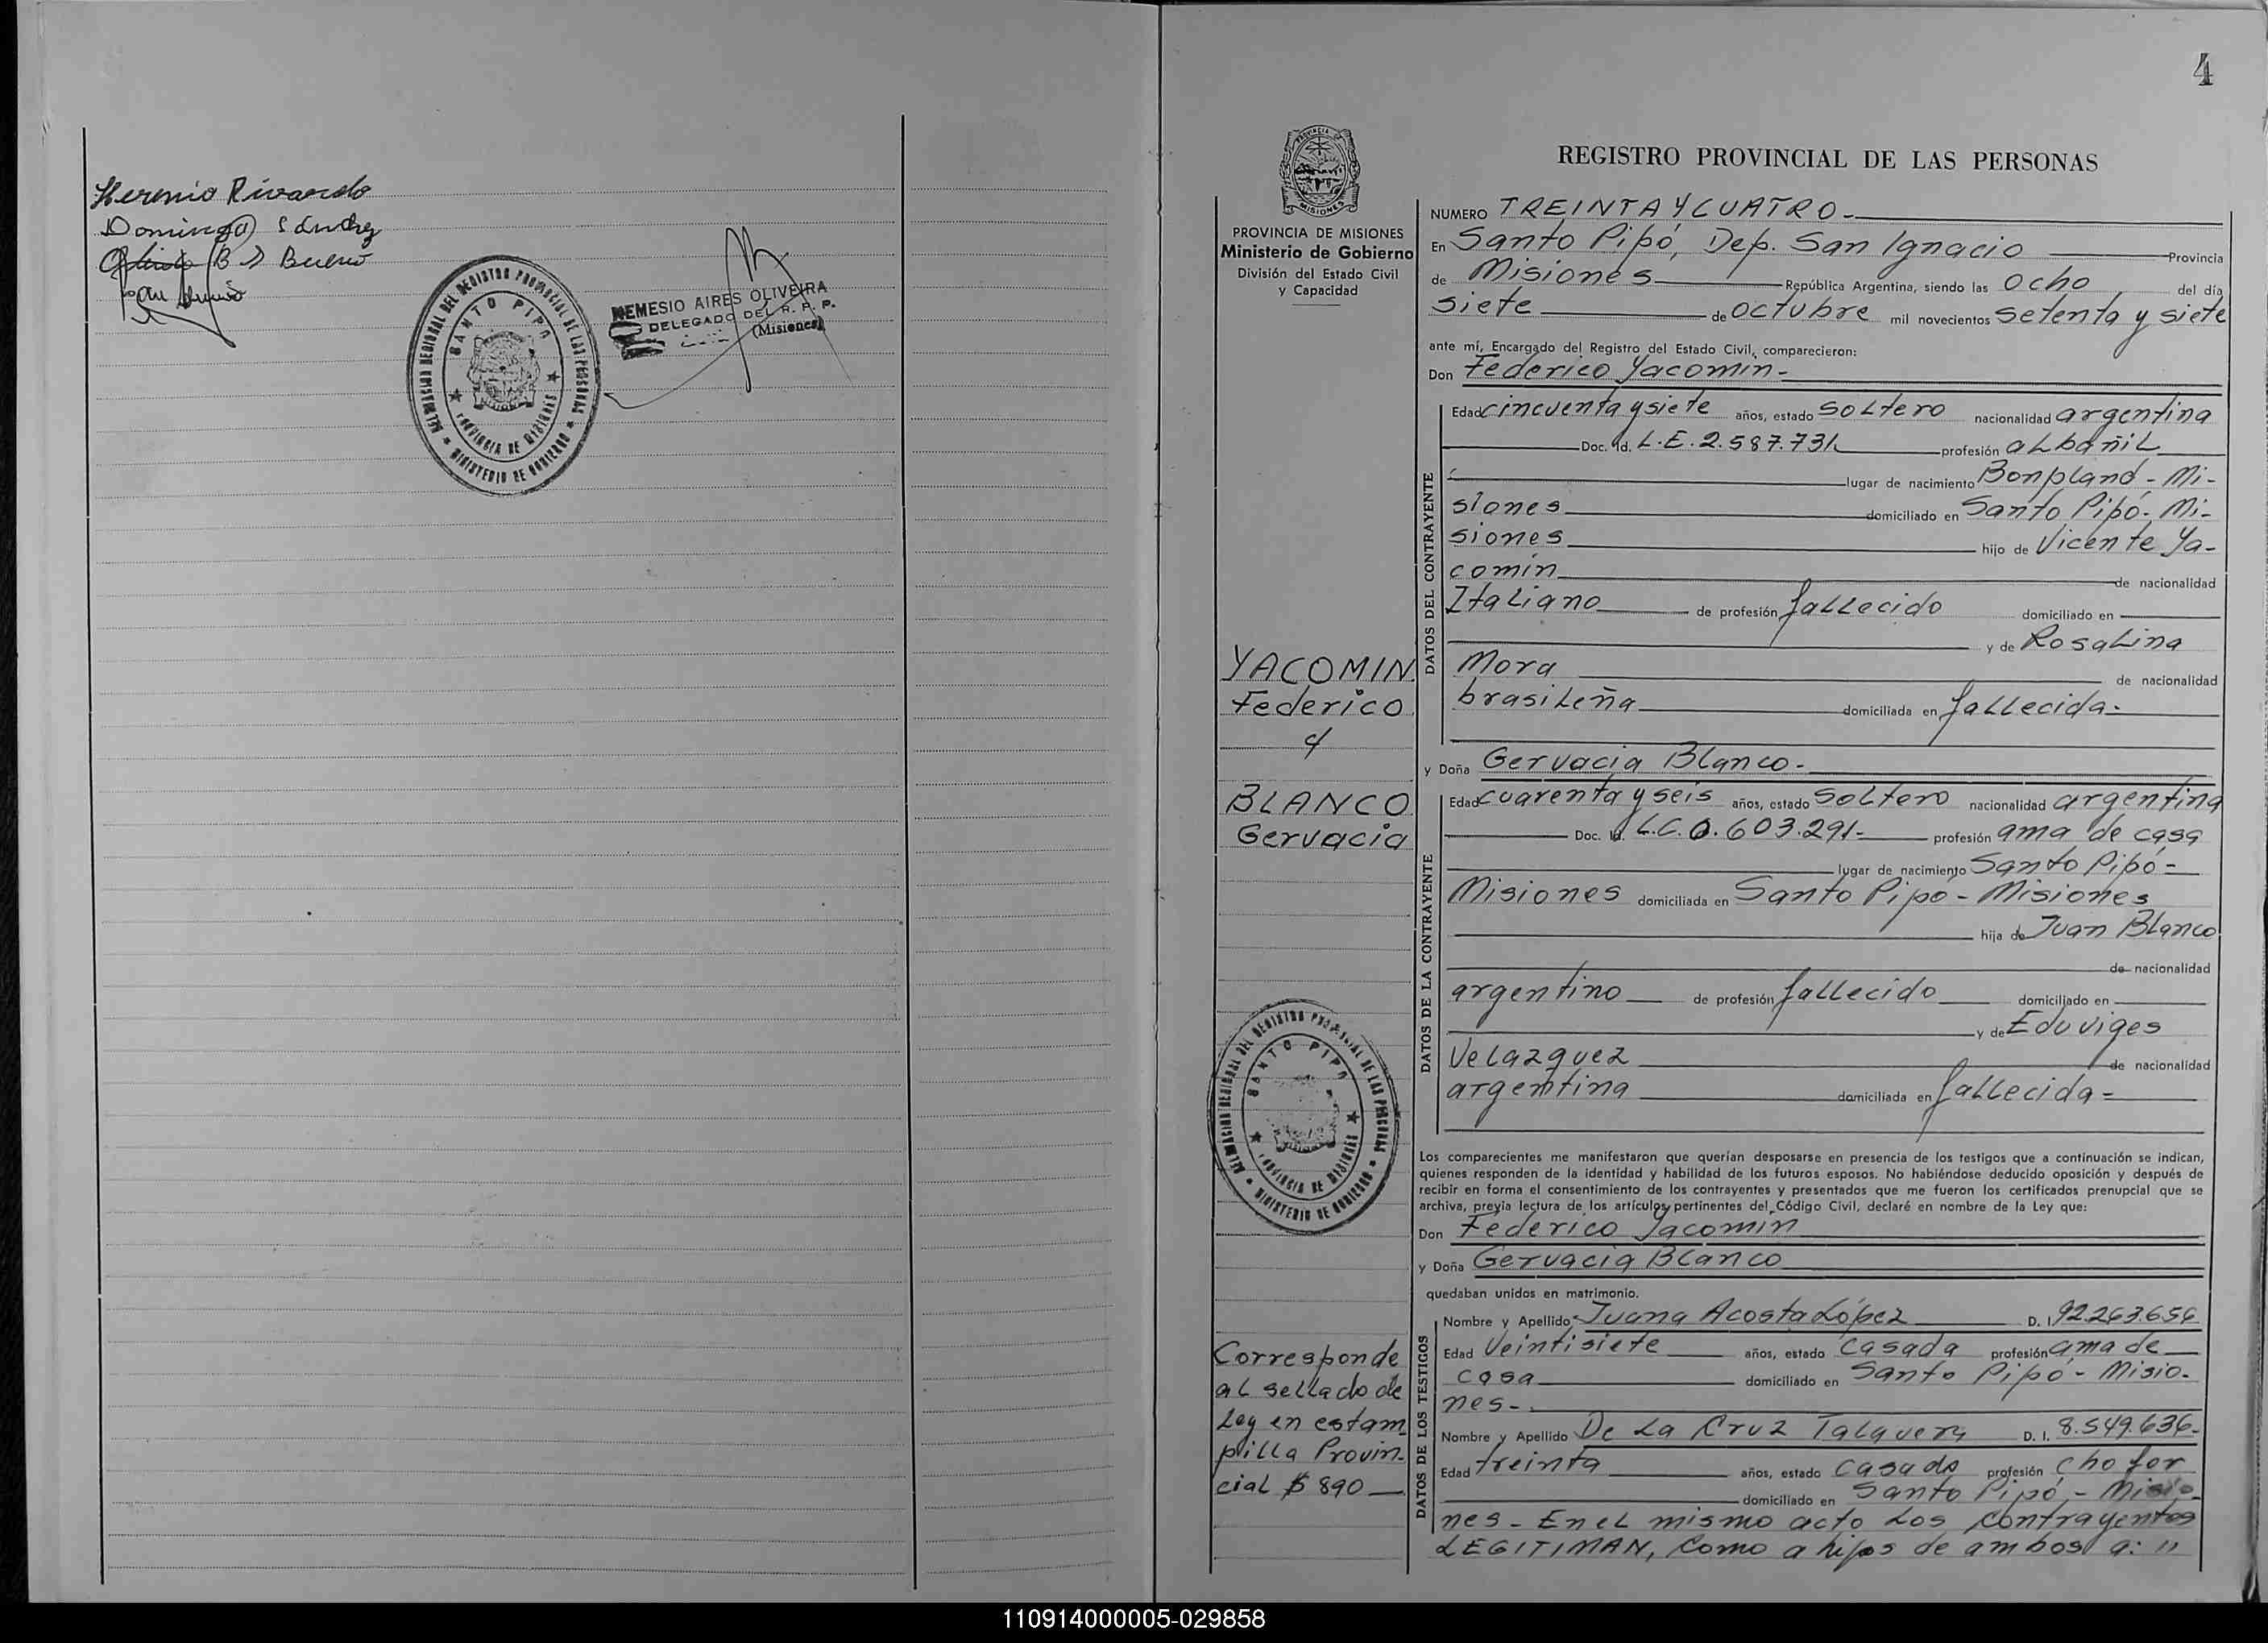 Herenio Rivarola
Domingo Sánchez
B Bueno
NEMESIO AIRES OLIVEIRA
DELEGADO DEL R. P. P.
(Misiones)
DEL REGISTRO PROVINCIAL DE LAS PERSONAS
SANTO PIPO
PROVINCIA DE MISIONES
MINISTERIO DE GOBIERNO
4
PROVINCIA DE MISIONES
Ministerio de Gobierno
División del Estado Civil
y Capacidad
YACOMIN
Federico
y
BLANCO
Gervacia
DEL REGISTRO PROVINCIAL DE LAS PERSONAS
SANTO PIPO
PROVINCIA DE MISIONES
MINISTERIO DE GOBIERNO
Corresponde
al sellado de
Ley en estam
pilla Provin-
cial $ 890
REGISTRO PROVINCIAL DE LAS PERSONAS
NUMERO TREINTA Y CUATRO.-
En Santo Pipó, Dep. San Ignacio Provincia
de Misiones República Argentina, siendo las ocho del día
siete de octubre mil novecientos setenta y siete
ante mí, Encargado del Registro del Estado Civil, comparecieron:
Don Federico Yacomin.-
DATOS DEL CONTRAYENTE
Edad cincuenta y siete años, estado soltero nacionalidad argentina
Doc. Id. L.E. 2.587.731 profesión albañil
lugar de nacimiento Bonpland - Mi-
siones domiciliado en Santo Pipó. Mi-
siones hijo de Vicente Ya-
comin de nacionalidad
Italiano de profesión fallecido domiciliado en
y de Rosalina
Mora de nacionalidad
brasileña domiciliada en fallecida.-
y Doña Gervacia Blanco.-
DATOS DE LA CONTRAYENTE
Edad cuarenta y seis años, estado soltero nacionalidad argentina
Doc. Id. L.C. 0.603.291- profesión ama de casa
lugar de nacimiento Santo Pipó-
Misiones domiciliada en Santo Pipó - Misiones
hija de Juan Blanco
de nacionalidad
argentino de profesión fallecido domiciliado en
y de Eduviges
Velazquez de nacionalidad
argentina domiciliada en fallecida-
Los comparecientes me manifestaron que querían desposarse en presencia de los testigos que a continuación se indican,
quienes responden de la identidad y habilidad de los futuros esposos. No habiéndose deducido oposición y después de
recibir en forma el consentimiento de los contrayentes y presentados que me fueron los certificados prenupcial que se
archiva, previa lectura de los artículos pertinentes del Código Civil, declaré en nombre de la Ley que:
Don Federico Yacomin
y Doña Gervacia Blanco
quedaban unidos en matrimonio.
DATOS DE LOS TESTIGOS
Nombre y Apellido Juana Acosta López D. I. 92.263.656
Edad Veintisiete años, estado casada profesión ama de
casa domiciliado en Santo Pipó - Misio-
nes-.
Nombre y Apellido De La Cruz Talavera D. I. 8.549.636-
Edad treinta años, estado casado profesión chofer
domiciliado en Santo Pipó - Misio-
nes - En el mismo acto los contrayentes
LEGITIMAN, como a hijos de ambos a: "
110914000005-029858